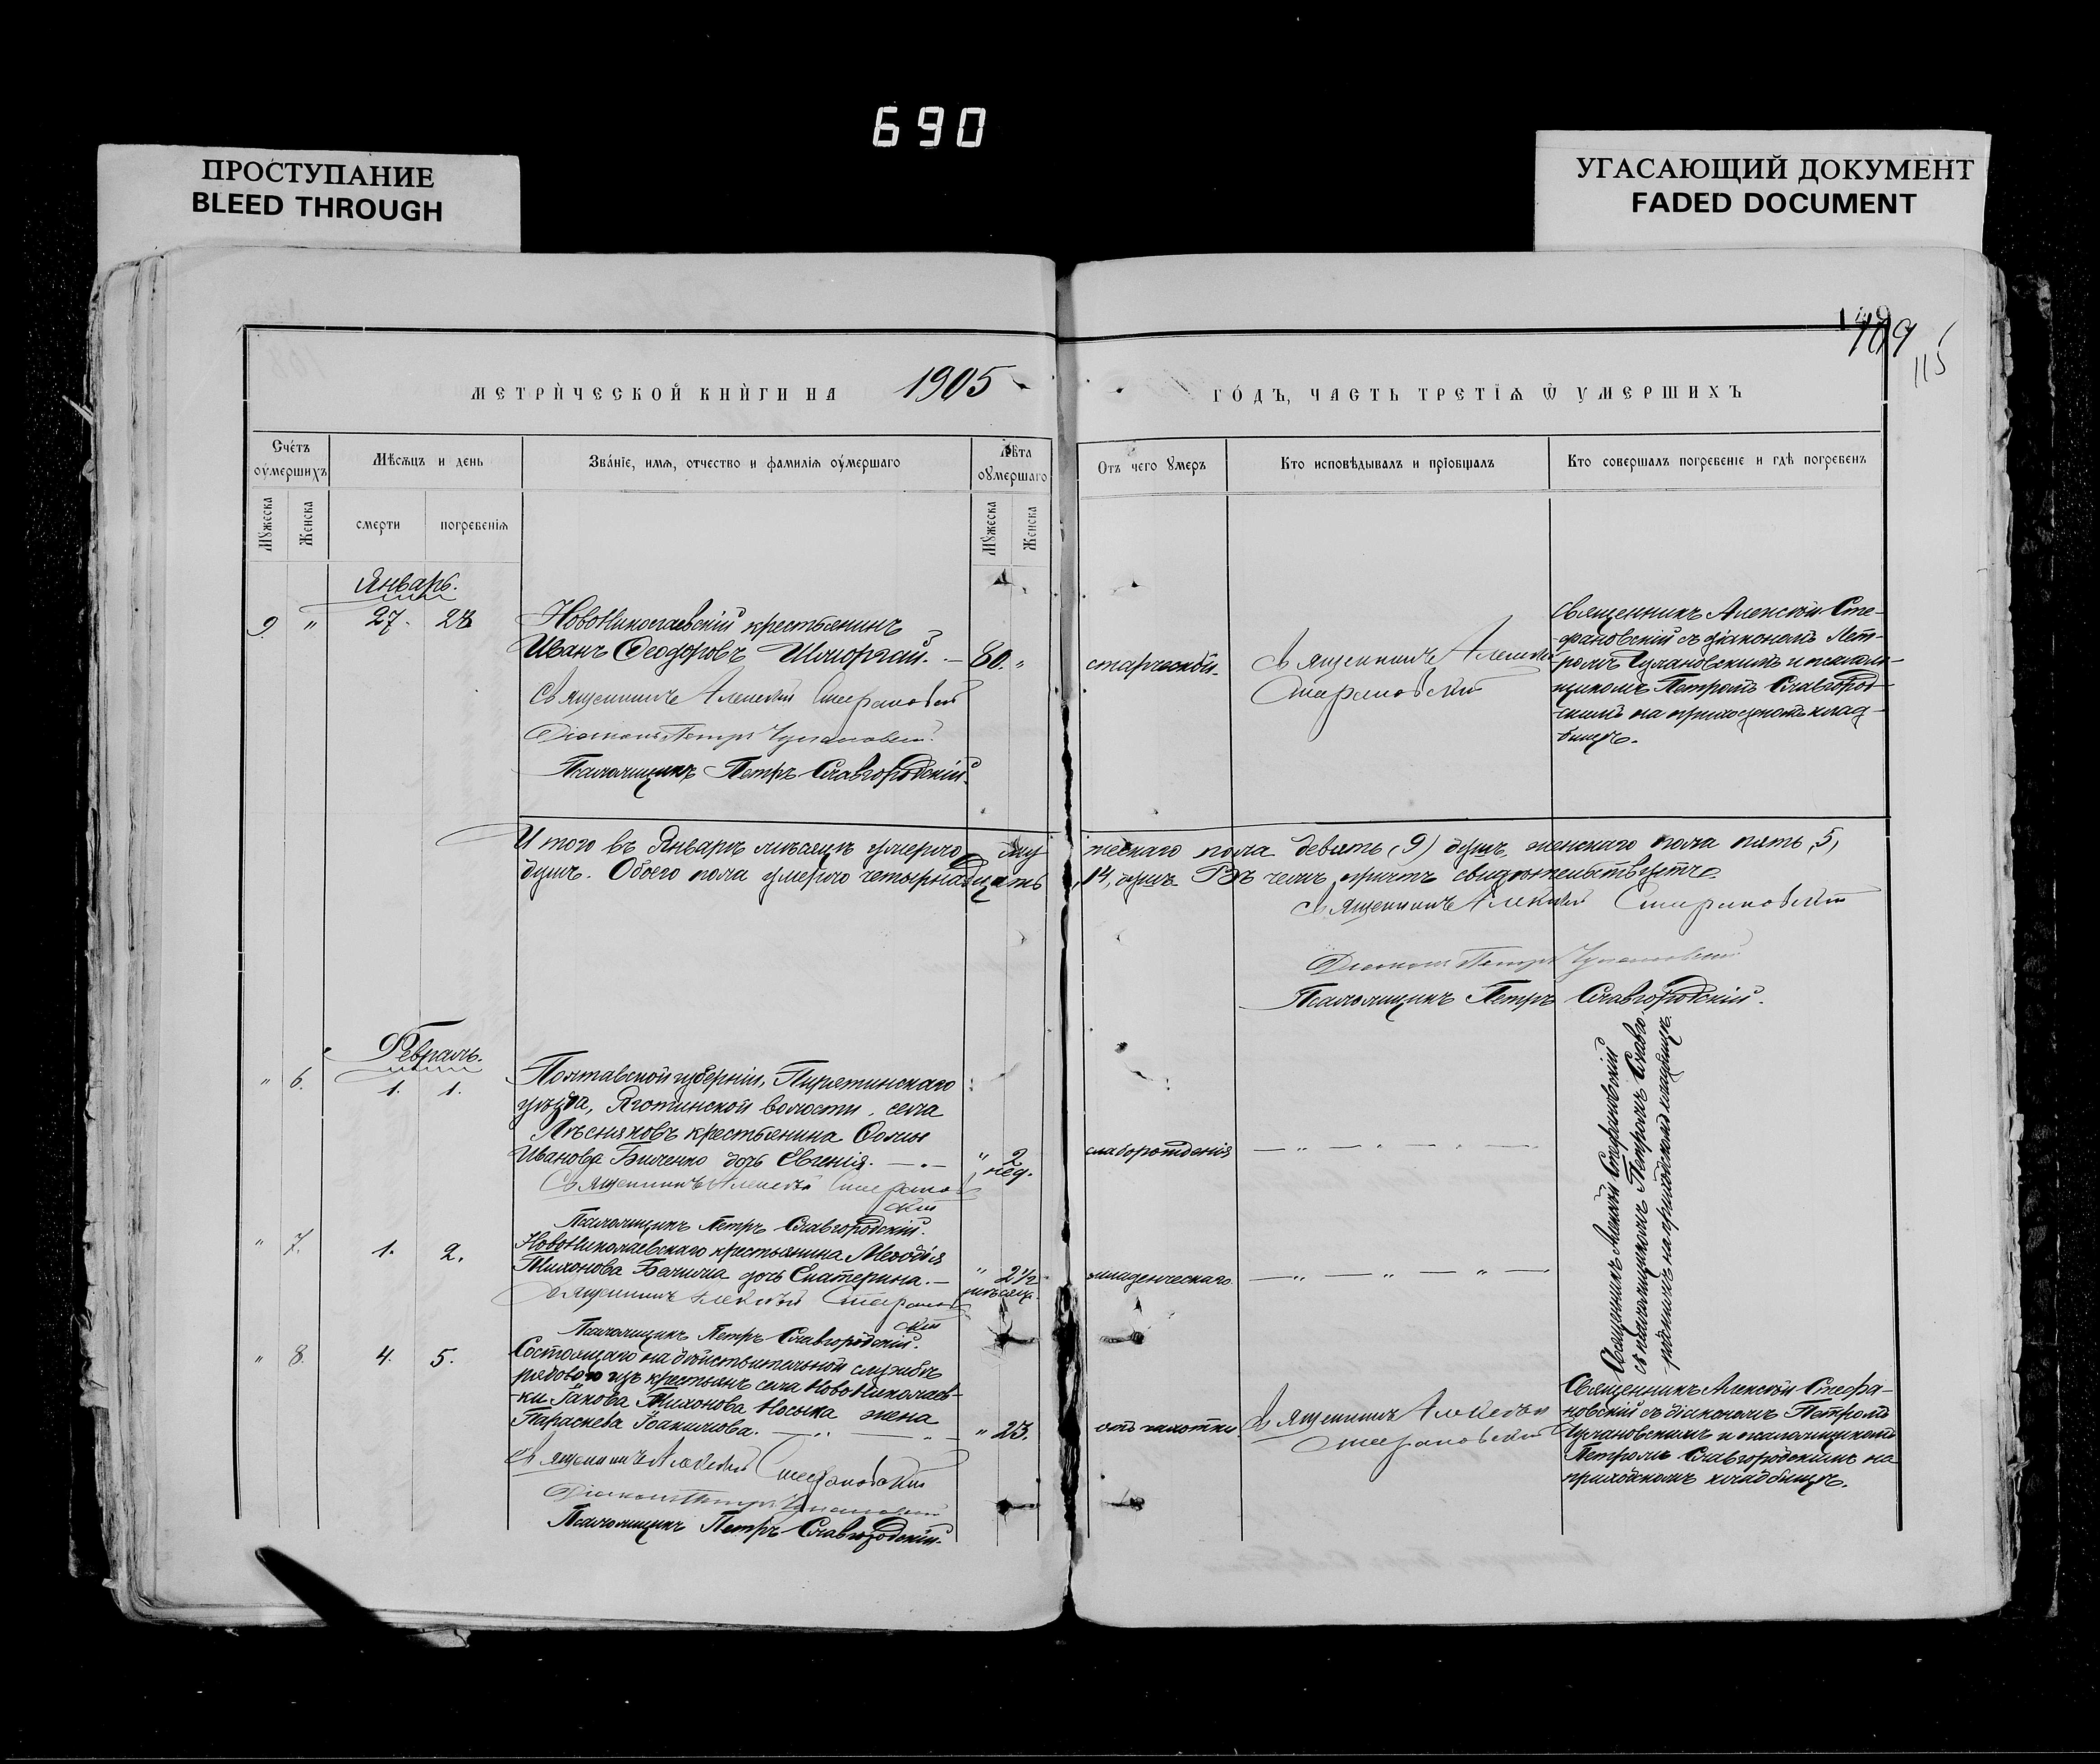 690
ПРОСТУПАНИЕ
BLEED THROUGH
УГАСАЮЩИЙ ДОКУМЕНТ
FADED DOCUMENT
109
115
МЕТРИЧЕСКОЙ КНИГИ НА 1905 ГОДЪ, ЧАСТЬ ТРЕТІЯ Ѿ УМЕРШИХЪ
Счетъ оумершихъ
Мѣсяцъ и день
Званіе, имя, отчество и фамилія оумершаго
Лѣта оумершаго
Отъ чего умеръ
Кто исповѣдывалъ и пріобщалъ
Кто совершалъ погребеніе и гдѣ погребенъ
Мужеска
Женска
смерти
погребенія
Мужеска
Женска
Январь.
9 " 27. 28
Новониколаевскій крестьянинъ
Иванъ Ѳеодоровъ
80. "
старческой.
Священникъ Алексѣй
Стефановскій
Священникъ Алексѣй Сте-
фановскій съ діакономъ Пет-
ромъ Чулановскимъ и псалом-
щикомъ Петромъ Славгород-
скимъ на приходскомъ клад-
бищѣ.
Священникъ Алексѣй Стефановскій
Діаконъ Петръ Чулановскій
Псаломщикъ Петръ Славгородскій.
Итого въ Январѣ мѣсяцѣ умерло мужескаго пола девять (9) душъ, женскаго пола пять (5)
душъ. Обоего пола умерло четырнадцать (14) душъ. Въ чемъ причтъ свидѣтельствуетъ.
Священникъ Алексѣй Стефановскій
Діаконъ Петръ Чулановскій
Псаломщикъ Петръ Славгородскій.
Февраль.
" 6. 1. 1.
Полтавской губерніи, Пирятинскаго
уѣзда, Яготинской волости, села
Лѣсняковъ крестьянина Ѳомы
Иванова Биченко дочь Евгенія.
" 2 нед.
слаборожденія
Священникъ Алексѣй Стефановскій
Псаломщикъ Петръ Славгородскій.
" 7. 1. 2.
Новониколаевскаго крестьянина Меѳодія
Тихонова дочь Екатерина.
" 2½ мѣсяц.
младенческаго
Священникъ Алексѣй Стефановскій
съ псаломщикомъ Петромъ Славго-
родскимъ на приходскомъ кладбищѣ.
Священникъ Алексѣй Стефановскій
Псаломщикъ Петръ Славгородскій.
" 8. 4. 5.
Состоящаго на дѣйствительной службѣ
рядового изъ крестьянъ села Новониколаев-
ки Іакова Тихонова Носыка жена
Параскева Іоакимова.
" 23.
отъ чахотки
Священникъ Алексѣй
Стефановскій
Священникъ Алексѣй Стефа-
новскій съ діакономъ Петромъ
Чулановскимъ и псаломщикомъ
Петромъ Славгородскимъ на
приходскомъ кладбищѣ.
Священникъ Алексѣй Стефановскій
Діаконъ Петръ Чулановскій
Псаломщикъ Петръ Славгородскій.